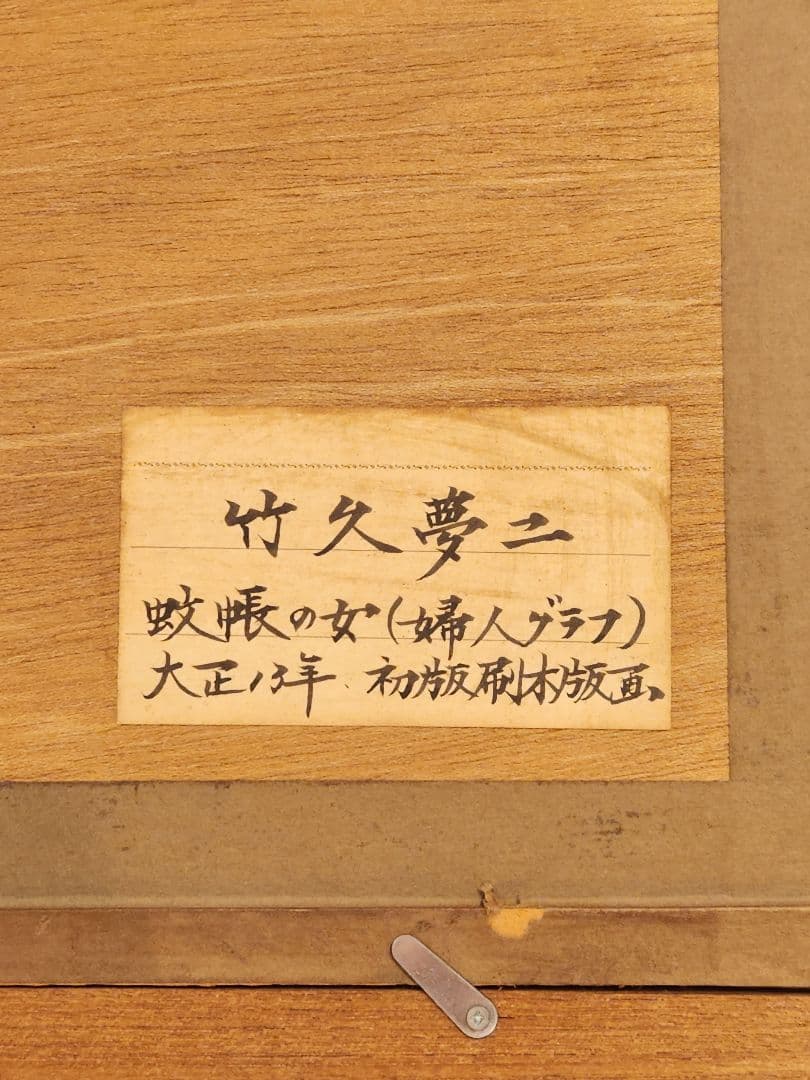 竹久夢二
蚊帳の女(婦人グラフ)
大正13年、初版刷木版画、